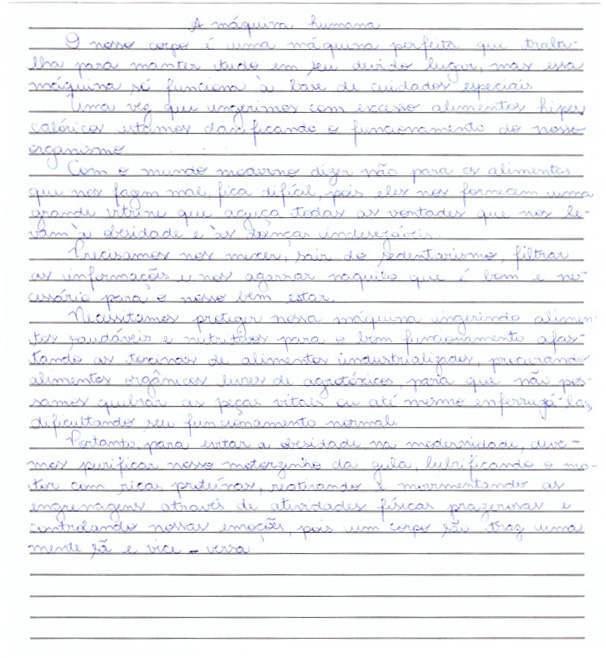 A máquina humana
O nosso corpo é uma máquina perfeita que traba-
lha para manter tudo em seu devido lugar, mas essa
máquina só funciona à base de cuidados especiais.
Uma vez que ingerimos com excesso alimentos hiper
calóricos estamos danificando o funcionamento do nosso
organismo
Com o mundo moderno dizer não para os alimentos
que nos fazem mal, fica difícil, pois eles nos fornecem uma
grande vitrine que aguça todas as vontades que nos le-
vam à obesidade e às doenças indesejáveis.
Precisamos nos mexer, sair do sedentarismo, filtrar
as informações e nos agarrar naquilo que é bom e ne-
cessário para o nosso bem estar.
Necessitamos proteger nossa máquina ingerindo alimen-
tos saudáveis e nutritivos para o bom funcionamento afas-
tando as toxinas de alimentos industrializados, procurando
alimentos orgânicos livres de agrotóxicos, para que não pos-
samos quebrar as peças vitais ou até mesmo enferrujá-las,
dificultando seu funcionamento normal.
Portanto, para evitar a obesidade na modernidade, deve-
mos purificar nosso motorzinho da gula, lubrificando o mo-
tor com ricas proteínas, reativando e movimentando as
engrenagens através de atividades físicas prazerosas e
controlando nossas emoções, pois um corpo são traz uma
mente sã e vice-versa